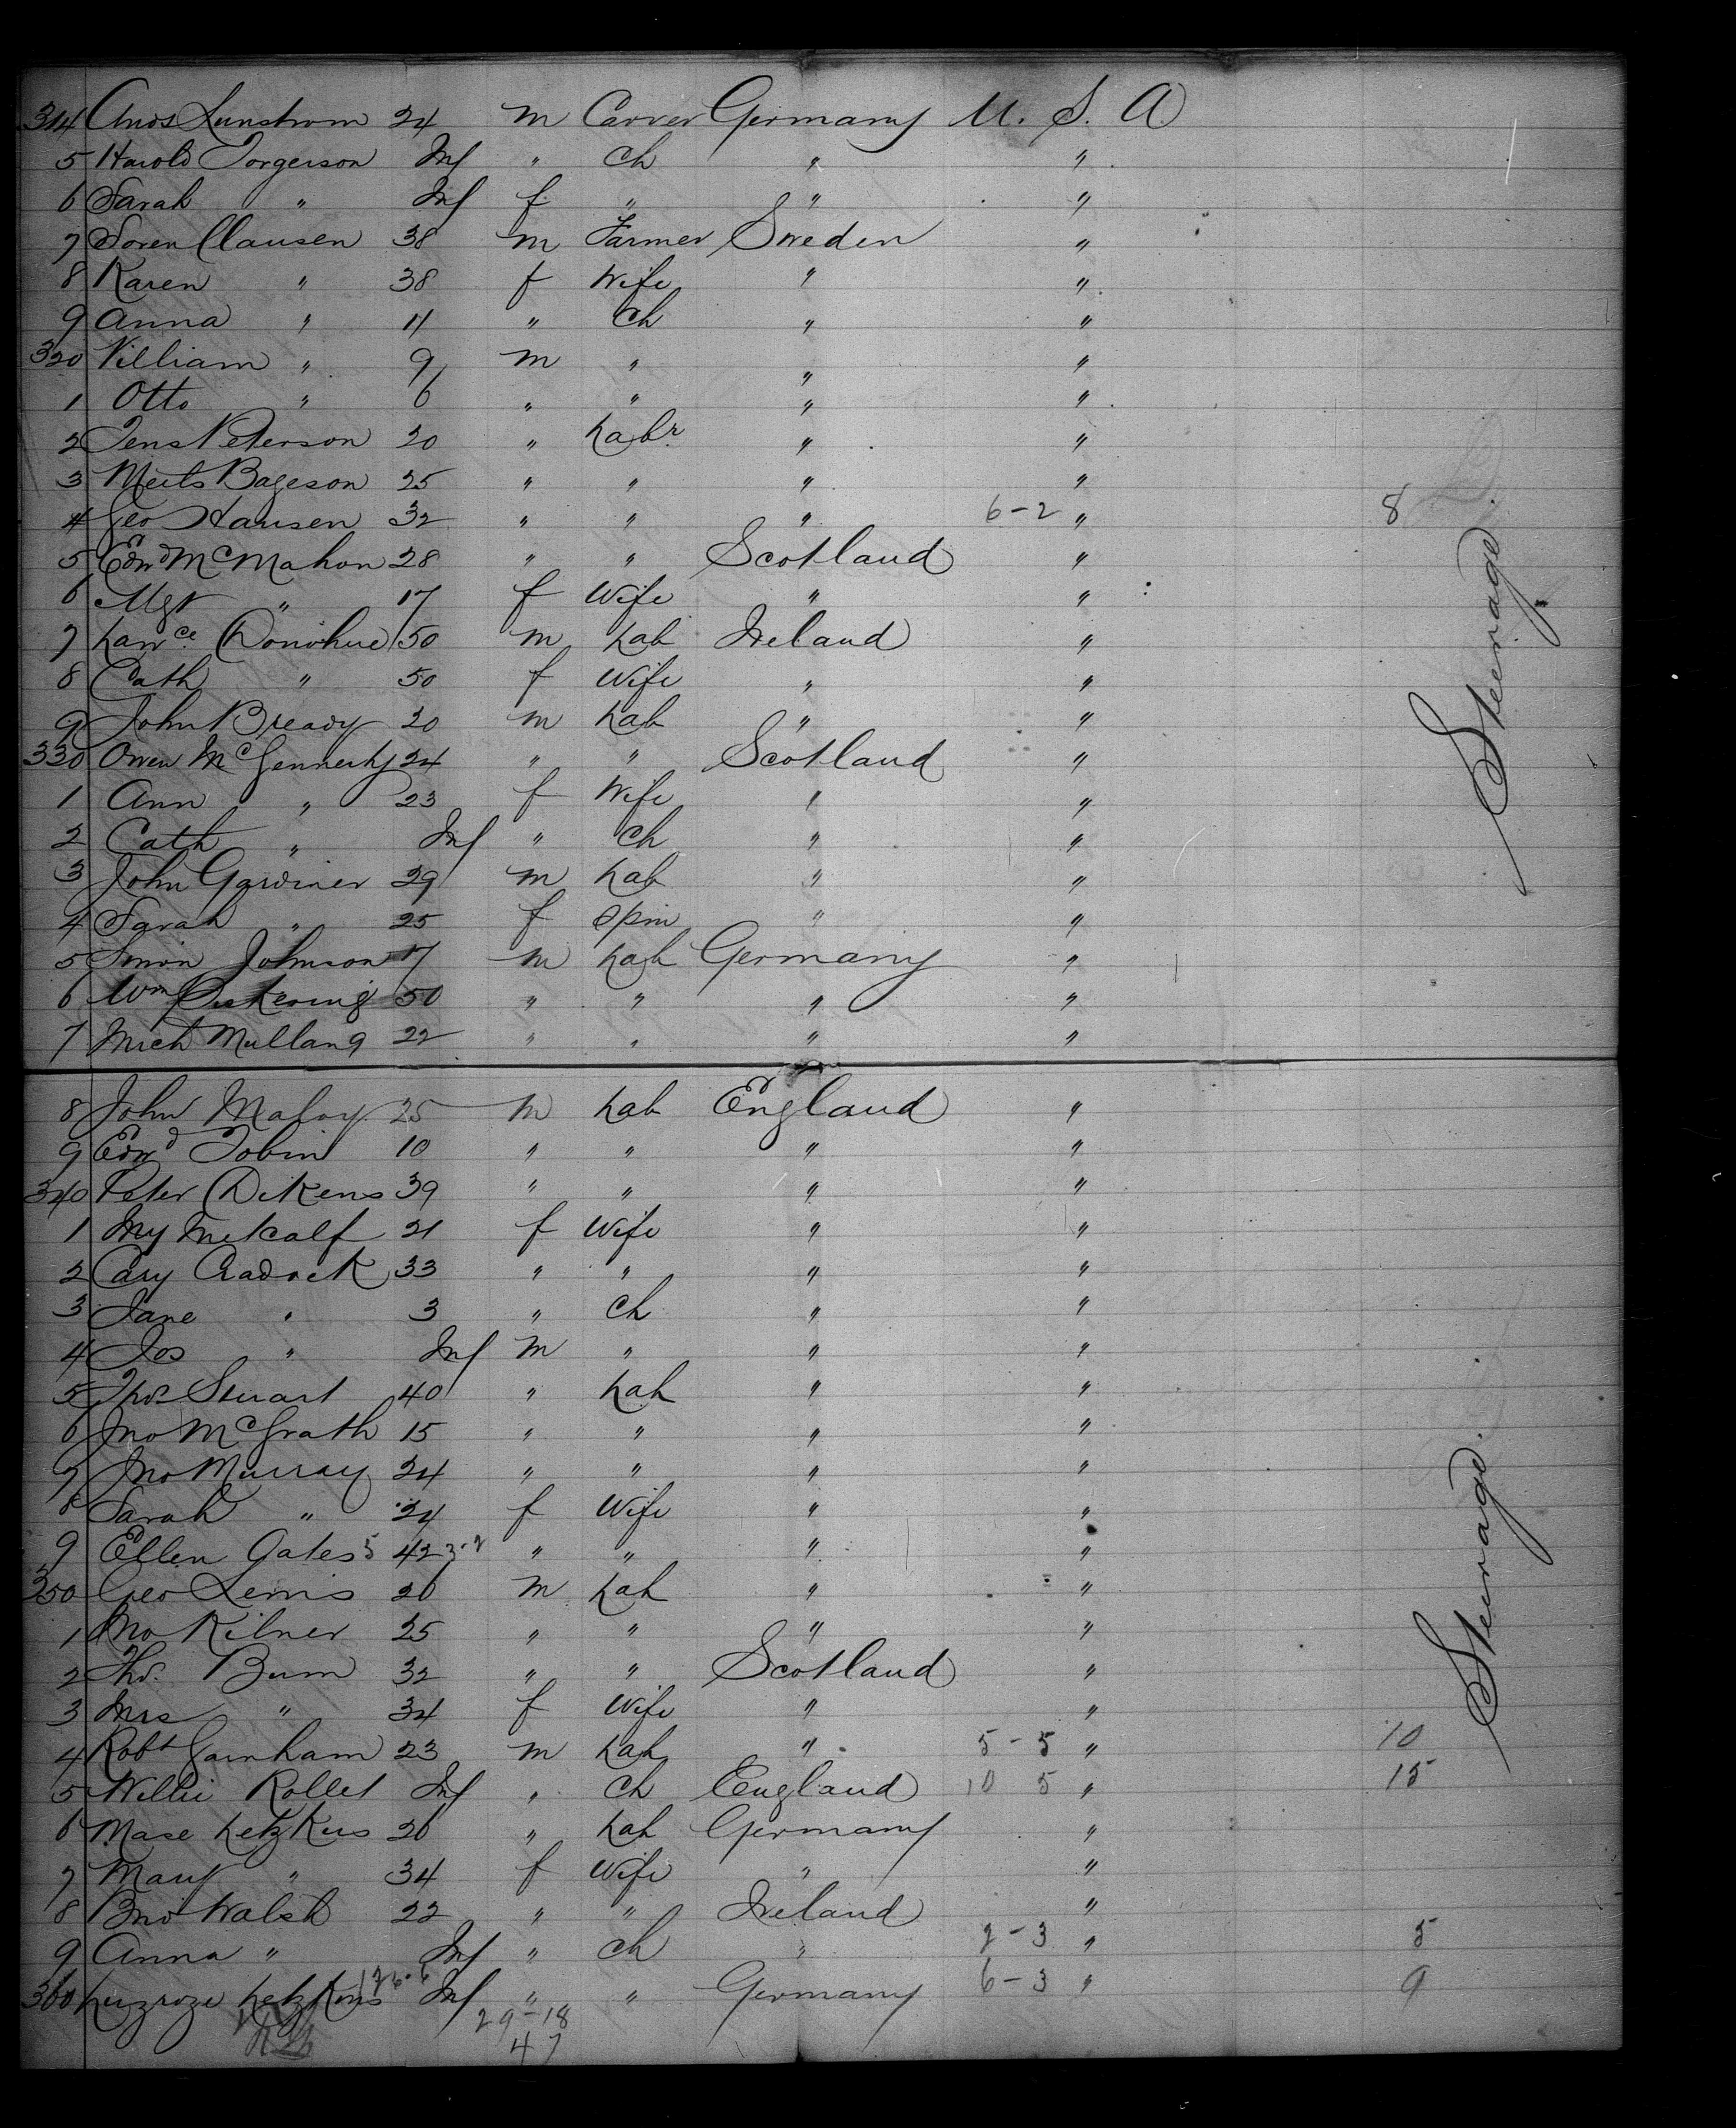 314 Ands Lunstrom 24 m Carver Germany U. S. A
5 Harold Torgerson Inf " ch " "
6 Sarah " Inf f " " "
7 Soren Clausen 38 m Farmer Sweden "
8 Karen " 38 f Wife " "
9 Anna " 11 " Ch " "
320 William " 9 m " " "
1 Otto " 6 " " " "
2 Jens Peterson 20 " Labr " "
3 Meits Bageson 25 " " " "
4 Geo Hansen 32 " " " 6-2 " 8
5 Edwd McMahon 28 " " Scotland "
6 Mgt " 17 f Wife " "
7 Lawce Donohue 50 m Lab Ireland "
8 Cath " 50 f Wife " "
9 John Bready 20 m Lab " "
330 Owen McGennerty 24 " " Scotland "
1 Ann " 23 f Wife " "
2 Cath " Inf " Ch " "
3 John Gardiner 29 m Lab " "
4 Sarah " 25 f Spin " "
5 Simon Johnson 17 m Lab Germany "
6 Wm Pickering 50 " " " "
7 Mich Mullang 22 " " " "
Steerage
8 John Maloy 25 m Lab England "
9 Edwd Tobin 10 " " " "
340 Peter Dikens 39 " " " "
1 My Metcalf 21 f Wife " "
2 Cary Cradock 33 " " " "
3 Jane " 3 " Ch " "
4 Jos " Inf m " " "
5 Thos Stuart 40 " Lab " "
6 Jno McGrath 15 " " " "
7 Jno Murray 24 " " " "
8 Sarah " 24 f Wife " "
9 Ellen Gates 5 42 3-2 " " " "
350 Geo Lewis 26 m Lab " "
1 Jno Kilner 25 " " " "
2 Thos. Burn 32 " " Scotland "
3 Mrs " 34 f Wife " "
4 Robt Garnham 23 m Lab " 5-5 " 10
5 Willie Rollet Inf " Ch England 10 5 " 15
6 Mase Letzkus 26 " Lab Germany "
7 Mary " 34 f Wife " "
8 Walsh 22 " " Ireland "
9 Anna " Inf " ch " 2-3 " 5
360 Inf " " Germany 6-3 " 9
29-18
47
Steerage.